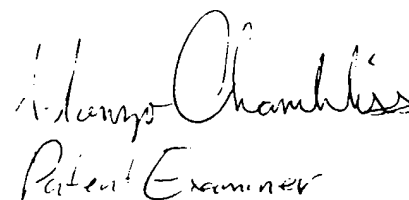 Alonzo Chambliss
Patent Examiner